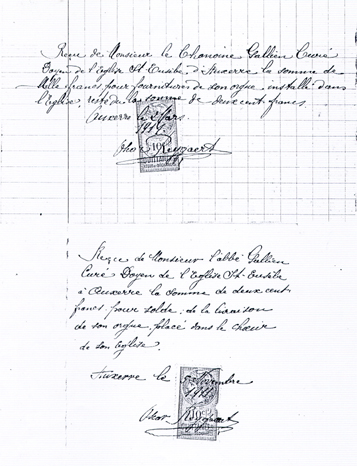 Reçu de Monsieur le Chanoine Gallien Curé
Doyen de l'Eglise St Eusèbe d'Auxerre la somme de
Mille francs pour fournitures de son orgue installé dans
l'Eglise, reste dû la somme de deux cent francs.
Auxerre le 2 Mars
10
Reçu de Monsieur l'abbé Gallien
Curé Doyen de l'Eglise St-Eusèbe
à Auxerre la somme de deux cent
francs pour solde de la livraison
de son orgue, placé dans le chœur
de son Eglise.
Auxerre le 5 Novembre
Oscar